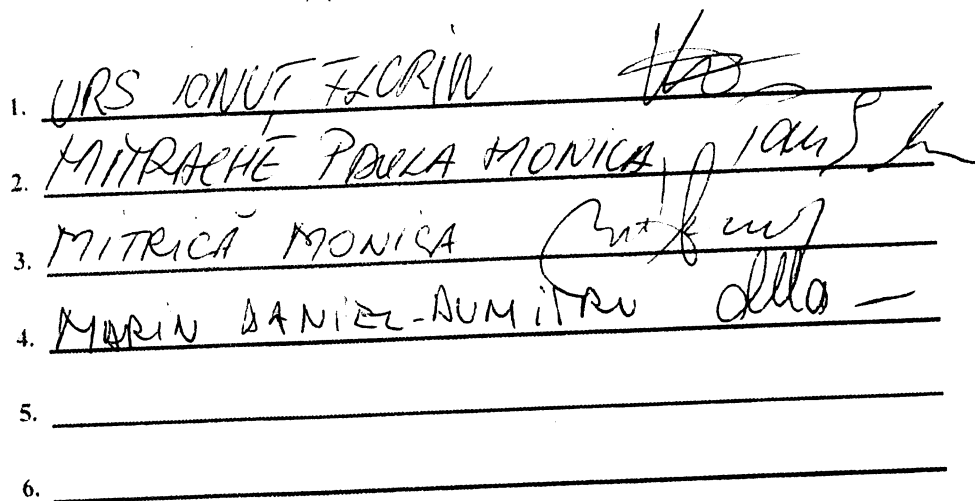 1. URS IONUȚ FLORIN
2. MITRACHE PAULA MONICA
3. MITRICĂ MONICA
4. MARIN DANIEL-DUMITRU
5.
6.